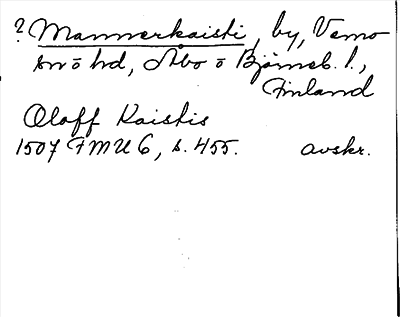 ? Mannerkaisti, by, Vemo
sn o hd, Åbo o Björneb. l.,
Finland
Oloff Kaistis
1507 FMU 6, s. 455. avskr.